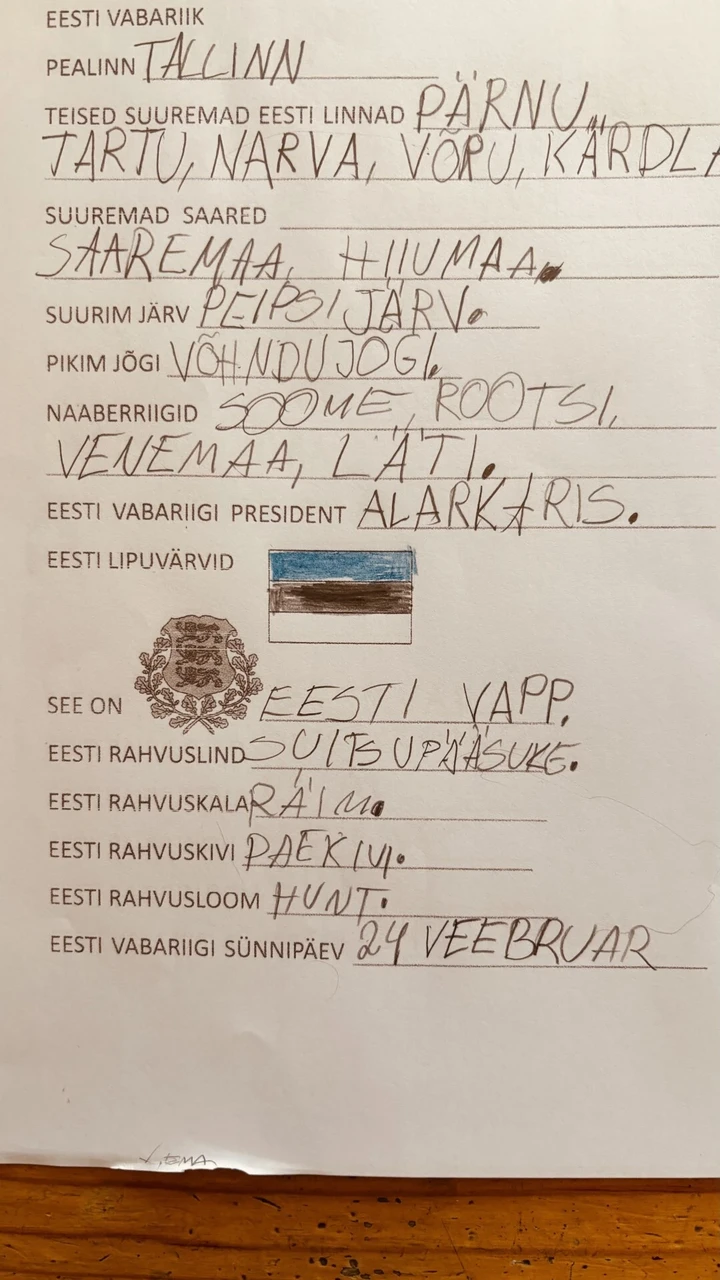 EESTI VABARIIK
PEALINN TALLINN
TEISED SUUREMAD EESTI LINNAD PÄRNU,
TARTU, NARVA, VÕRU, KÄRDLA
SUUREMAD SAARED
SAAREMAA, HIIUMAA.
SUURIM JÄRV PEIPSI JÄRV.
PIKIM JÕGI VÕHNDU JOGI.
NAABERRIIGID SOOME, ROOTSI,
VENEMAA, LÄTI.
EESTI VABARIIGI PRESIDENT ALAR KARIS.
EESTI LIPUVÄRVID
SEE ON EESTI VAPP.
EESTI RAHVUSLIND SUITSUPÄÄSUKE.
EESTI RAHVUSKALA RÄIM.
EESTI RAHVUSKIVI PAEKIVI.
EESTI RAHVUSLOOM HUNT.
EESTI VABARIIGI SÜNNIPÄEV 24 VEEBRUAR